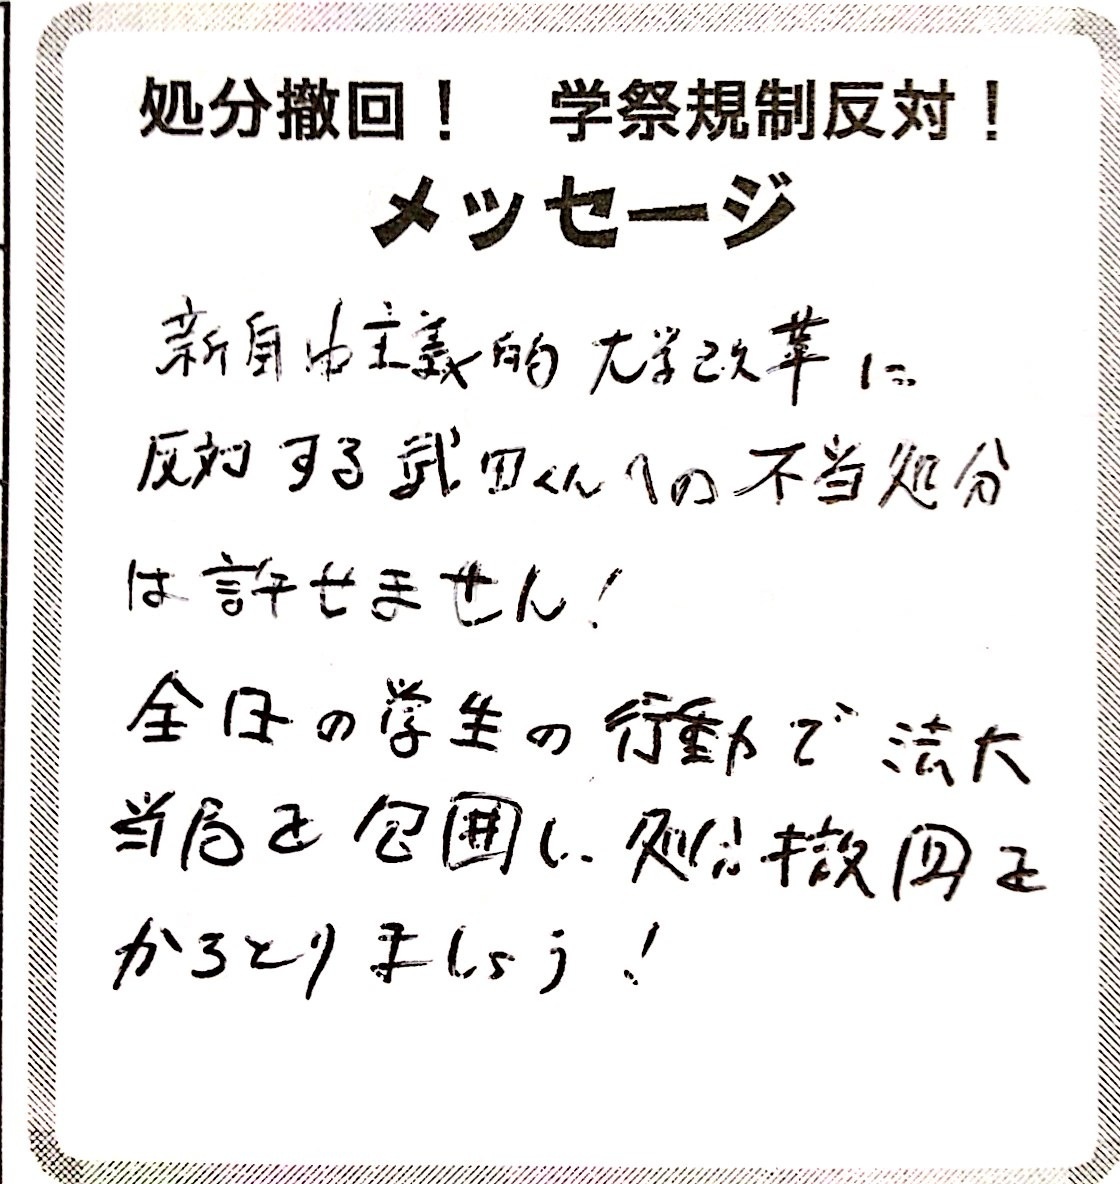 処分撤回！　学祭規制反対！
メッセージ
新自由主義的大学改革に
反対する武田くんへの不当処分
は許せません！
全日の学生の行動で法大
当局を包囲し、処分撤回を
かちとりましょう！